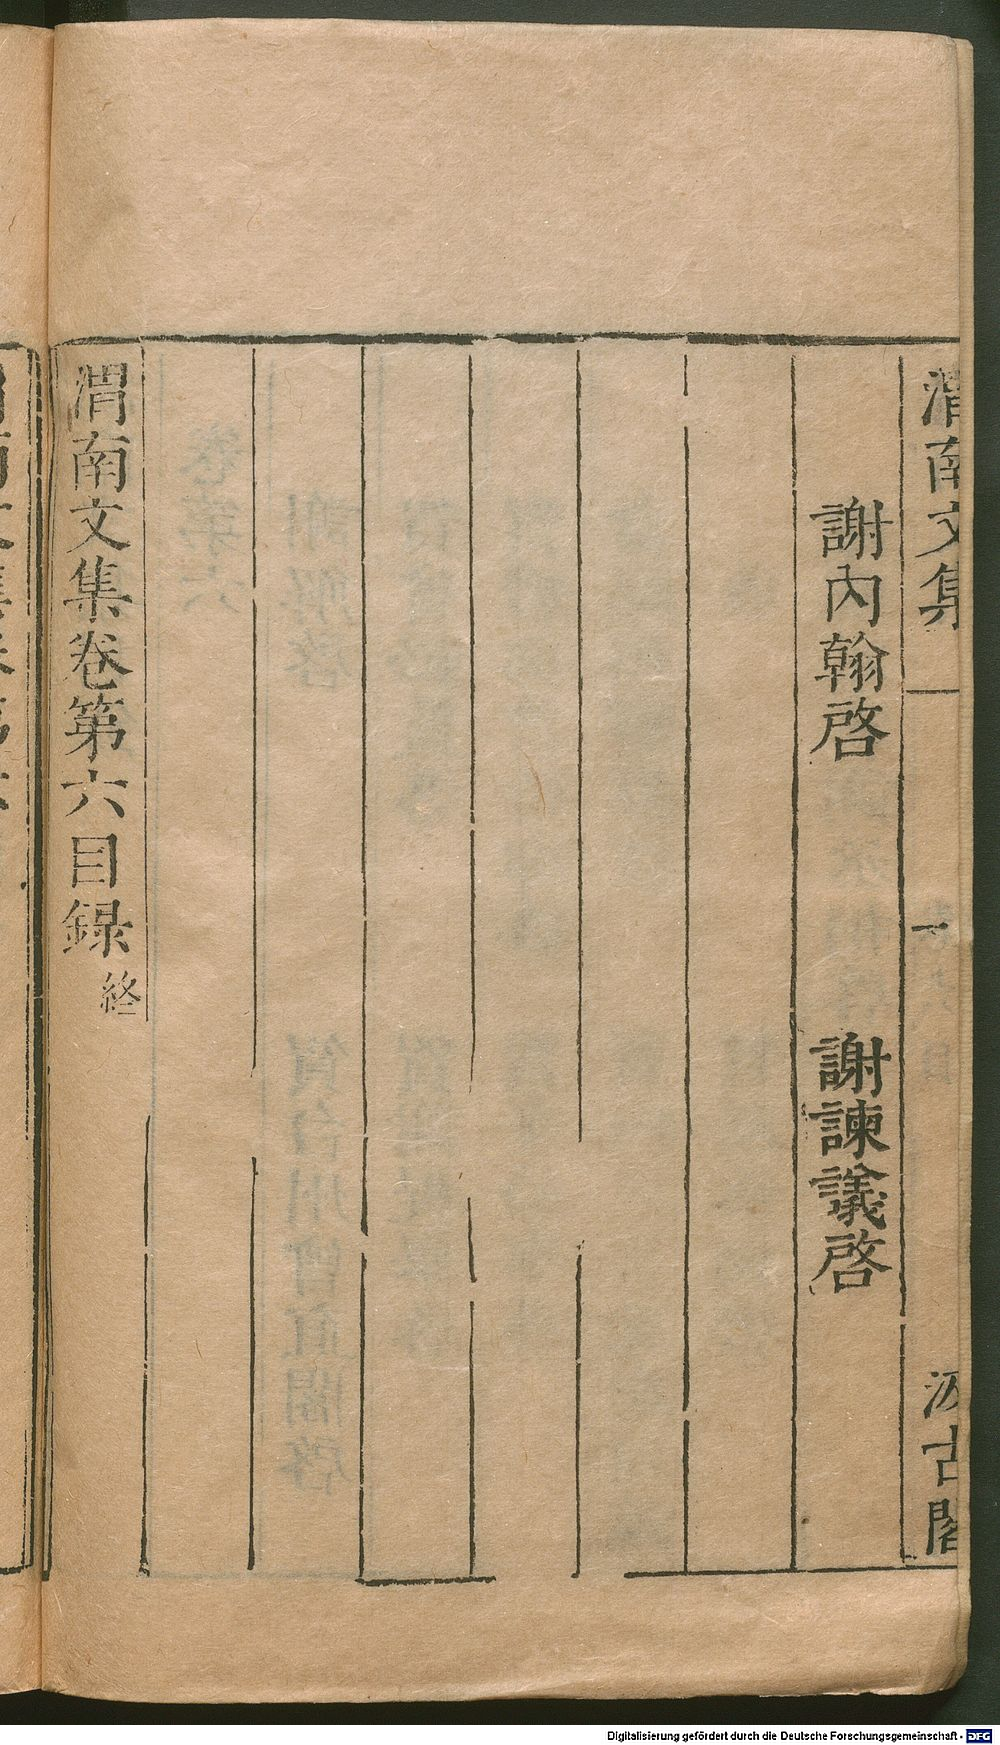 渭南文集
一
汲古閣
謝內翰啓
謝諫議啓
渭南文集卷第六目録終
Digitalisierung gefördert durch die Deutsche Forschungsgemeinschaft - DFG